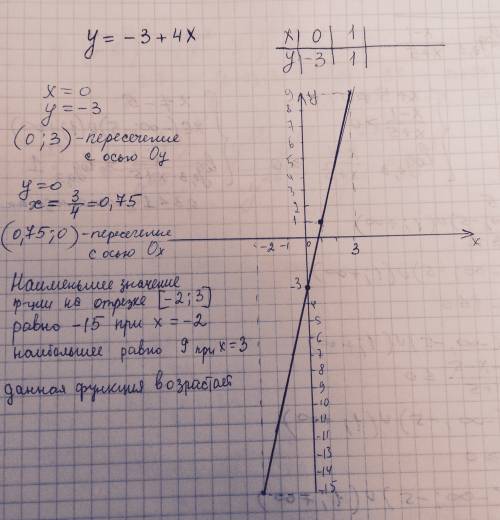 y = -3 + 4x
x | 0 | 1 |
y | -3 | 1
x = 0
y = -3
(0; 3) - пересечение
с осью Oy
y = 0
x = 3/4 = 0,75
(0,75; 0) - пересечение
с осью Ox
Наименьшее значение
ф-ции на отрезке [-2; 3]
равно -15 при x = -2
наибольшее равно 9 при x = 3
данная функция возрастает
9 y
8
7
6
5
4
3
2
1
-2 -1 0 3 x
-3
4
-5
-6
-7
-8
-9
-10
-11
-11
-13
-14
-15